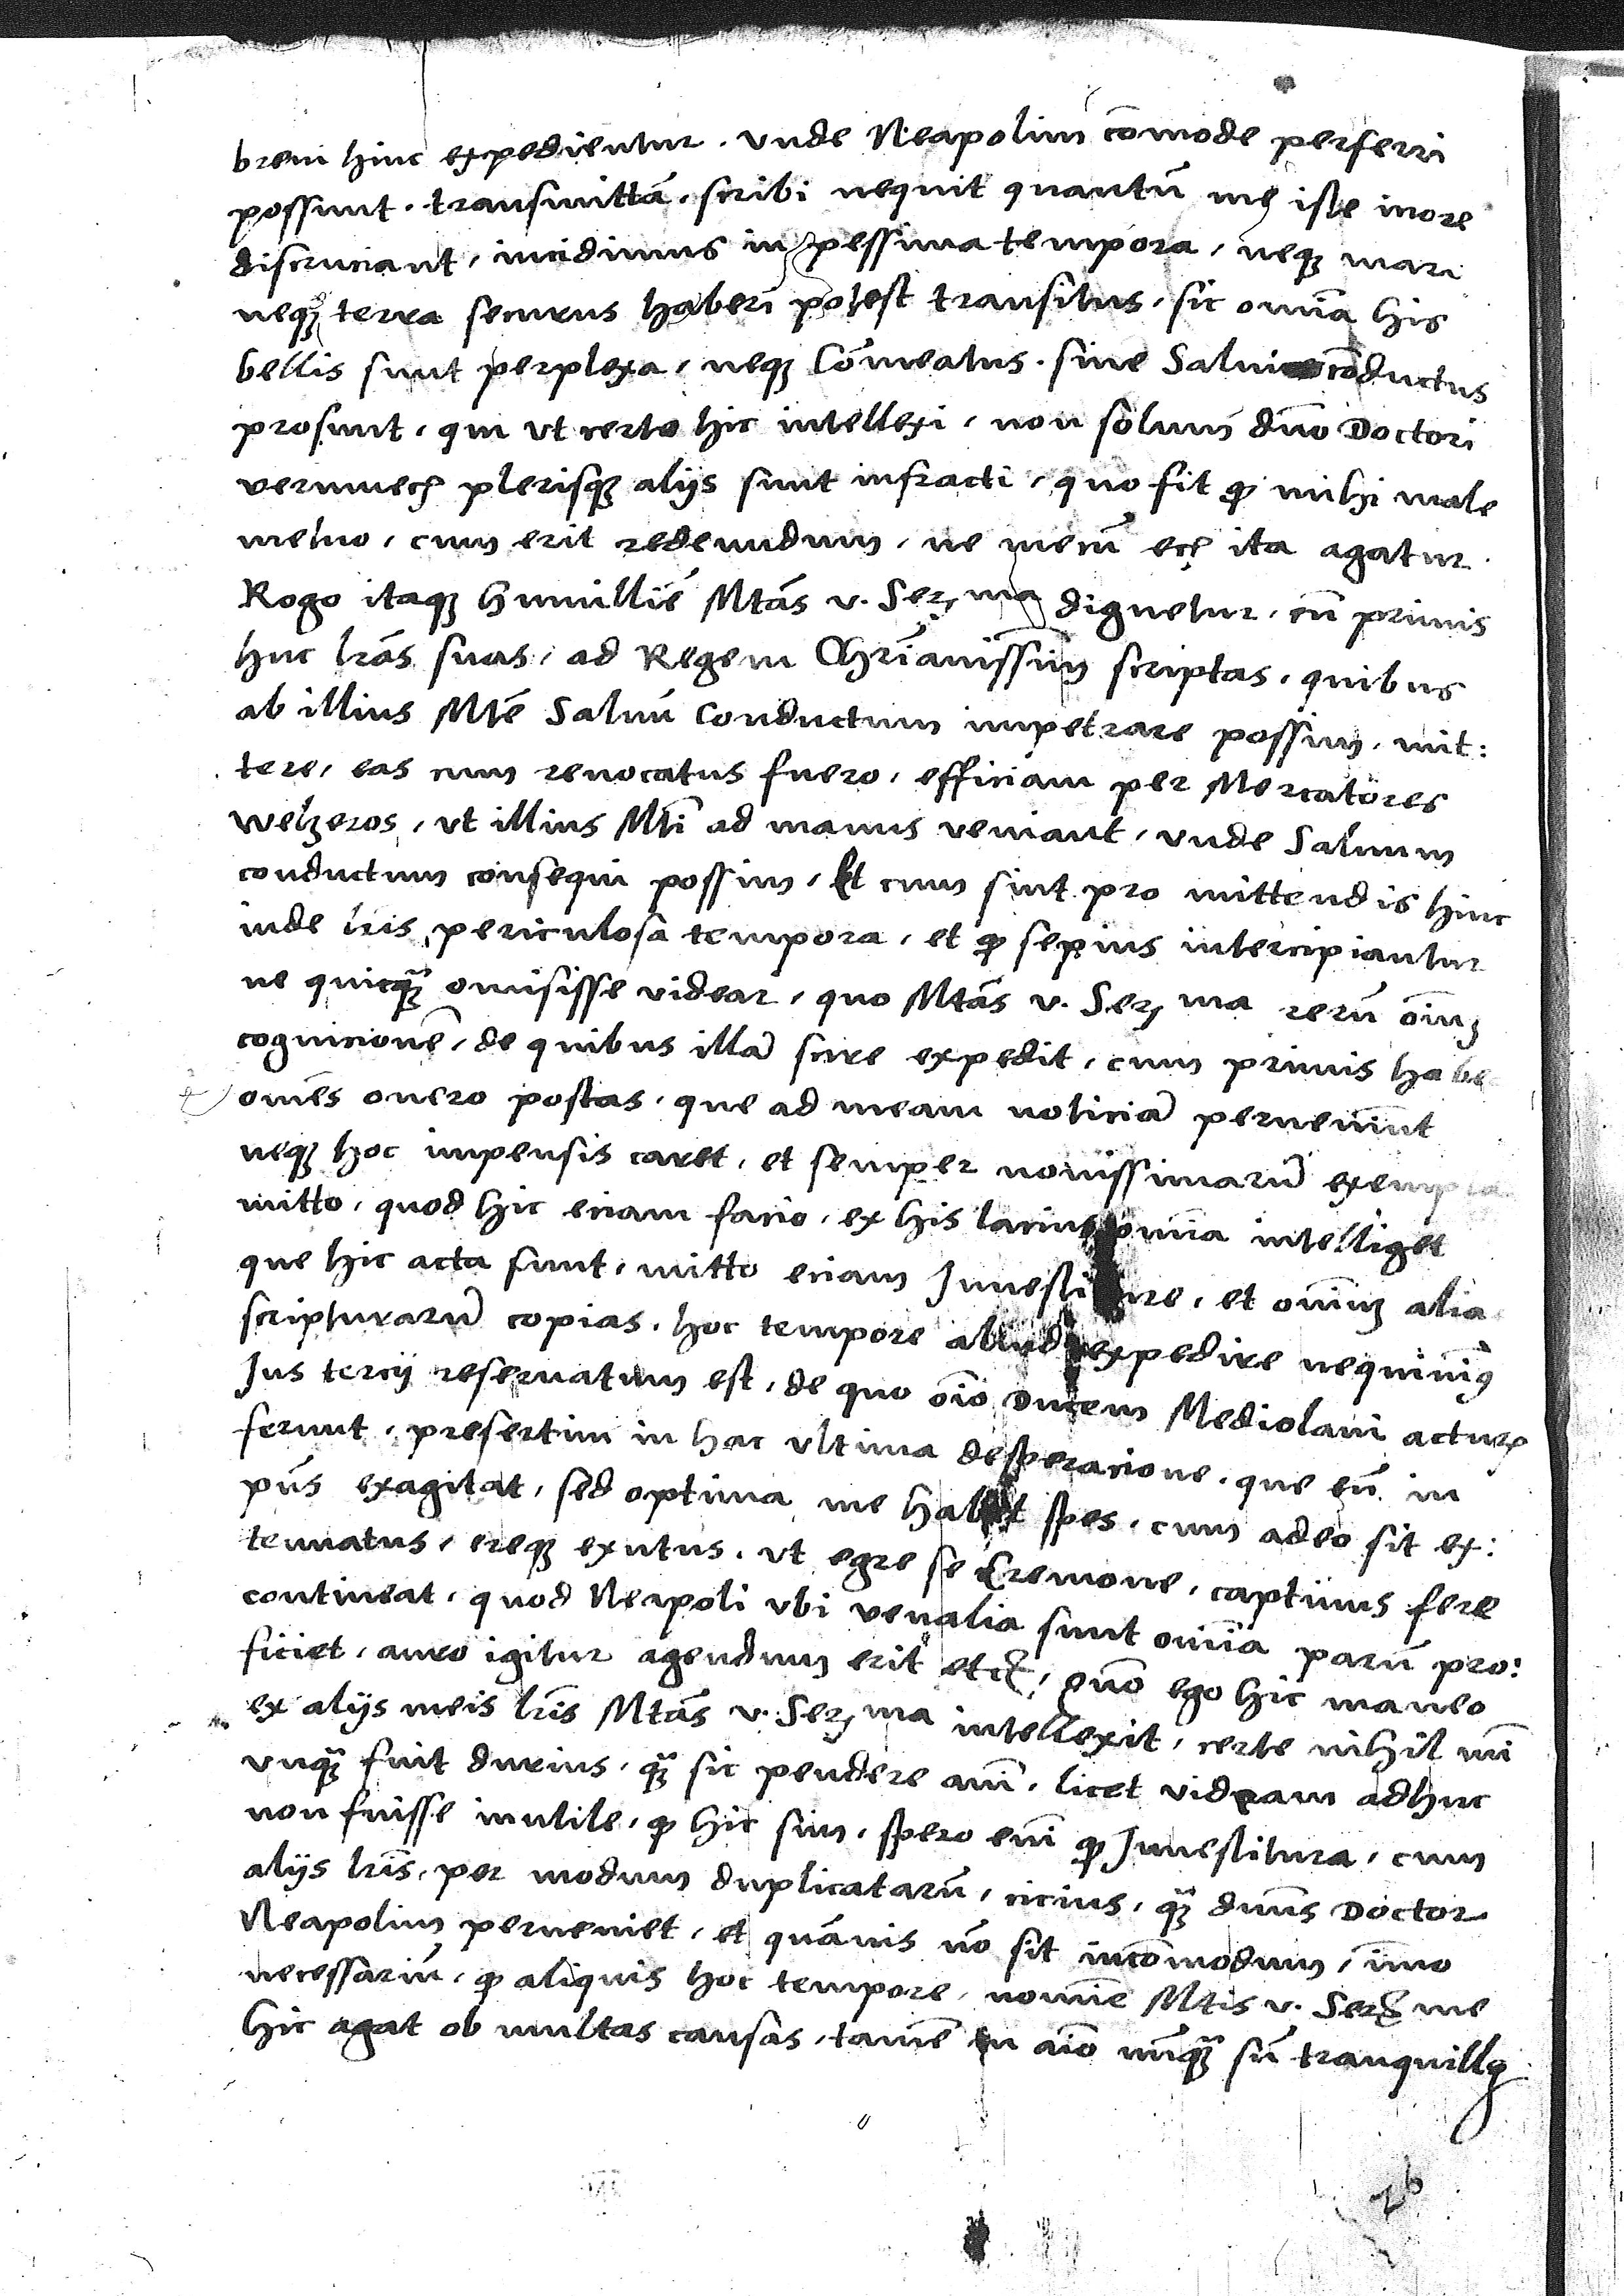 breui hinc expedientur. vnde Neapolim cōmode perferri
possunt. transmittā. scribi nequit quantū me iste more
discruciant, incidimus in pessima tempora, neqꝫ mari
neqꝫ terra securus haberi potest transitus, sic om̄ia his
bellis sunt perplexa, neqꝫ Com̄eatus. siue Salui cōductus
prosunt, qui vt certo hic intellexi, non solum dn̄o Doctori
verumecꝫ plerisqꝫ alijs sunt infracti, quo fit ꝙ mihi male
metuo, cum erit redeundum, ne mecū ecꝫ ita agatur.
Rogo itaqꝫ humillīē Mtās v. Serꝫma dignetur, cū primis
huc lrās suas, ad Regem Chriānissim̄ scriptas, quibus
ab illius Mtē Saluū Conductum impetrare possim, mit:
tere, eas cum reuocatus fuero, efficiam per Mercatores
Welzeros, vt illius Mti ad manus veniant, vnde Saluum
conductum consequi possim, Et cum sint pro mittendis hinc
inde lris periculosa tempora, et ꝙ sepius intercipiantur
ne quicqꝫ omisisse videar, quo Mtās v. Serꝫma rerū oīuꝫ
cognicionē, de quibus illā scire expedit, cum primis habe
om̄es onero postas, que ad meam noticiā perueniūt
neqꝫ hoc impensis caret, et semper nouissimarū exempla
mitto, quod hic eciam facio, ex his lacius om̄ia intelliget
que hic acta sunt, mitto eciam Inuestiture, et om̄iuꝫ alia
scripturarū copias, hoc tempore aliud expedire nequiuimꝰ
Jus tercij reseruatum est, de quo oīo Ducem Mediolani acturꝫ
ferunt, presertim in hac vltima desperacione, que eū in
pn̄s exagitat, sed optima me habet spes, cum adeo sit ex:
tenuatus, ereqꝫ exutus, vt egre se Cremone, captiuus fere
contineat, quod Neapoli vbi venalia sunt om̄ia parū pro:
ficiet, auro igitur agendum erit etcꝫ, quō ego hic maneo
ex alijs meis lris Mtās v. Serꝫma intellexit, certe nihil mī
vnqꝫ fuit durius, qꝫ sic pendere anī, licet videam adhuc
non fuisse inutile, ꝙ hic sim, spero enī ꝙ Inuestitura, cum
alijs lris, per modum duplicatarū, cicius, qꝫ dn̄us Doctor
Neapolim perueniet, et quāuis nō sit incōmodum, īmo
necessariū, ꝙ aliquis hoc tempore, nomīe Mtis v. Serꝫme
hic agat ob multas causas, tamē in aīo nunqꝫ sū tranquillꝰ
26